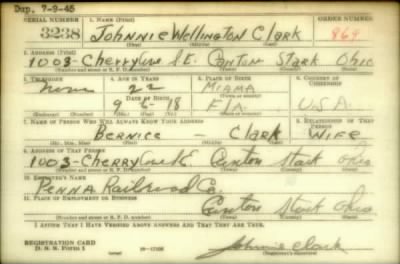 Dup. 7-9-45
SERIAL NUMBER 1. NAME (Print) ORDER NUMBER
3238 Johnnie Wellington Clark 869
(First) (Middle) (Last)
2. ADDRESS (Print)
1003-Cherry Ave S.E. Canton Stark Ohio
(Number and street or R. F. D. number) (Town) (County) (State)
3. TELEPHONE 4. AGE IN YEARS 5. PLACE OF BIRTH 6. COUNTRY OF CITIZENSHIP
None 22 MIAMA
DATE OF BIRTH (Town or county)
9 6 18 FLA. U.S.A.
(Mo.) (Day) (Yr.) (State or country)
7. NAME OF PERSON WHO WILL ALWAYS KNOW YOUR ADDRESS 8. RELATIONSHIP OF THAT PERSON
BERNICE - Clark WIFE
(Mr., Mrs., Miss) (First) (Middle) (Last)
9. ADDRESS OF THAT PERSON
1003-Cherry Ave S.E. Canton Stark Ohio
(Number and street or R. F. D. number) (Town) (County) (State)
10. EMPLOYER'S NAME
Penna Railroad Co.
11. PLACE OF EMPLOYMENT OR BUSINESS
Canton Stark Ohio
(Number and street or R. F. D. number) (Town) (County) (State)
I AFFIRM THAT I HAVE VERIFIED ABOVE ANSWERS AND THAT THEY ARE TRUE.
REGISTRATION CARD
D. S. S. Form 1 Johnnie Clark
(Registrant's signature)